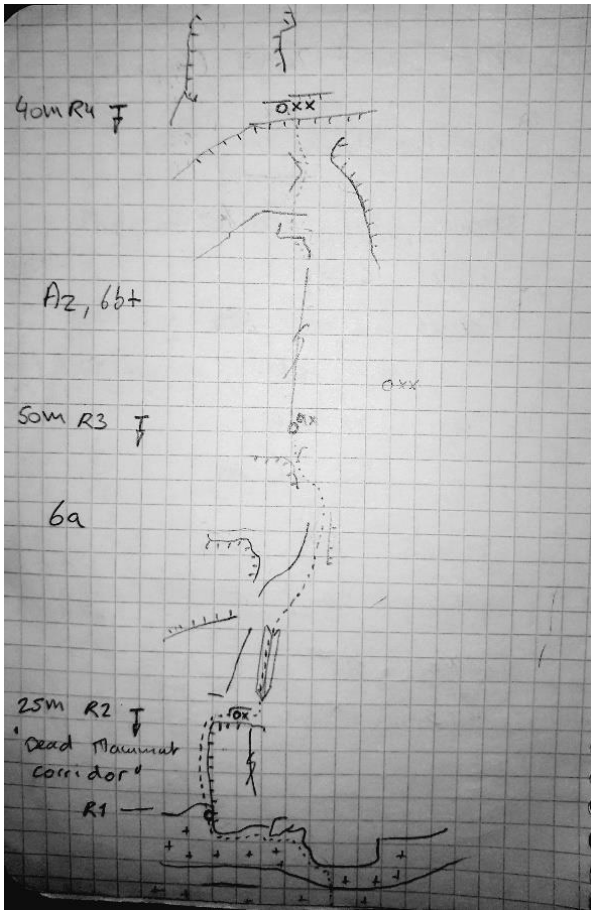 40m R4
oxx
A2, 6b+
oxx
50m R3
oxx
6a
25m R2
ox
"Dead Mammut
corridor"
R1